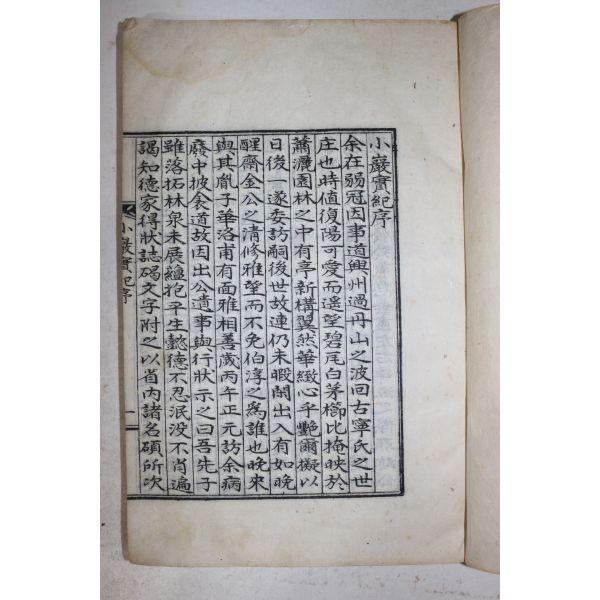 小巖實紀序
余在弱冠因事道興州過丹山之波回古寧氏之世
庄也時值復陽可愛而遥望碧瓦白茅櫛比掩映於
蕭灑園林之中有亭新構翼然華緻心乎艷爾擬以
日後一遂委訪嗣後世故連仍未暇間出入有如晩
醒齋金公之清修雅望而不免伯淳之爲誰也晩來
與其胤子華洛甫有面雅相善歲丙午正元訪余病
廢中披食道故因出公遺事與行狀示之曰吾先子
雖落拓林泉未展蘊抱平生懿德不忍泯没不肖遍
謁知德家得狀誌碣文字附之以省内諸名碩所次
小巖實紀序
一